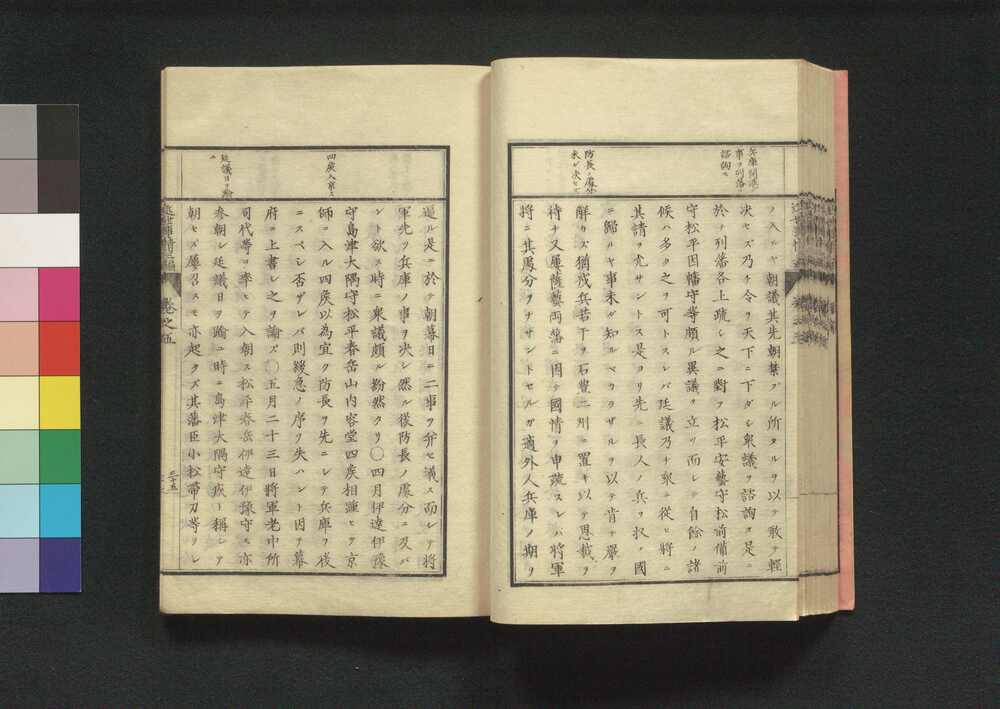 兵庫開港ノ
事ヲ列藩ニ
諮詢ス
ヲ入ルヤ朝議其先朝禁ズル所タルヲ以テ敢テ輕
決セズ乃チ令ヲ天下ニ下ダシ衆議ヲ諮詢ス是ニ
於テ列藩各上疏シ之ニ對フ松平安藝守松前備前
守松平因幡守等頗ル異議ヲ立ツ而シテ自餘ノ諸
候ハ多ク之ヲ可トスレバ廷議乃チ衆ニ從ヒ將ニ
其請ヲ允サントス是ヨリ先ニ長人ノ兵ヲ收メ國
ニ歸ルヤ事未ダ知ルベカラザルヲ以テ肯テ嚴ヲ
解カズ猶戍兵若干ヲ石豊二州ニ置キ以テ恩裁ヲ
待チ又屢薩藝両藩ニ因テ國情ヲ申疏スレバ將軍
將ニ其處分ヲナサントセルガ適外人兵庫ノ期ヲ
防長ノ處分
未ダ決セズ
逼ル是ニ於テ朝幕日ニ二事ヲ并セ議ス而レ𪜈將
軍先ヅ兵庫ノ事ヲ決シ然ル後防長ノ處分ニ及バ
ント欲ス時ニ衆議頗ル紛然タリ〇四月伊達伊豫
守島津大隅守松平春岳山内容堂四矦相踵ヒテ京
師ニ入ル四矦以為宜ク防長ヲ先ニシテ兵庫ヲ後
ニスベシ否ザレバ則緩急ノ序ヲ失ハント因テ幕
府ニ上書シ之ヲ論ズ〇五月二十三日將軍老中所
司代等ヲ率ヒテ入朝ス松平春岳伊達伊豫守モ亦
参朝シ廷議日ヲ踰ユ時ニ島津大隅守疾ト稱シテ
朝セズ屢召スモ亦起タズ其藩臣小松帯刀等ヲシ
四矦入京ス
廷議日ヲ踰
ユ
近世事情三編
巻之五
三十五